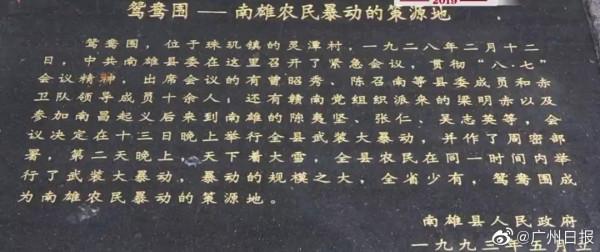 2019
鸳鸯围——南雄农民暴动的策源地
鸳鸯围，位于珠玑镇的灵潭村，一九二八年二月十二
日，中共南雄县委在这里召开了紧急会议，贯彻“八·七”
会议精神，出席会议的有曾昭秀、陈召南等县委成员和赤
卫队领导成员十余人；还有赣南党组织派来的梁明赤以及
参加南昌起义后来到南雄的陈夷坚、张仁、吴志英等，会
议决定在十三日晚上举行全县武装大暴动，并作了周密部
署，第二天晚上，天下着大雪，全县农民在同一时间内举
行了武装大暴动，暴动的规模之大，全省少有，鸳鸯围成
为南雄农民暴动的策源地。
南雄县人民政府
一九九三年五月立
@广州日报